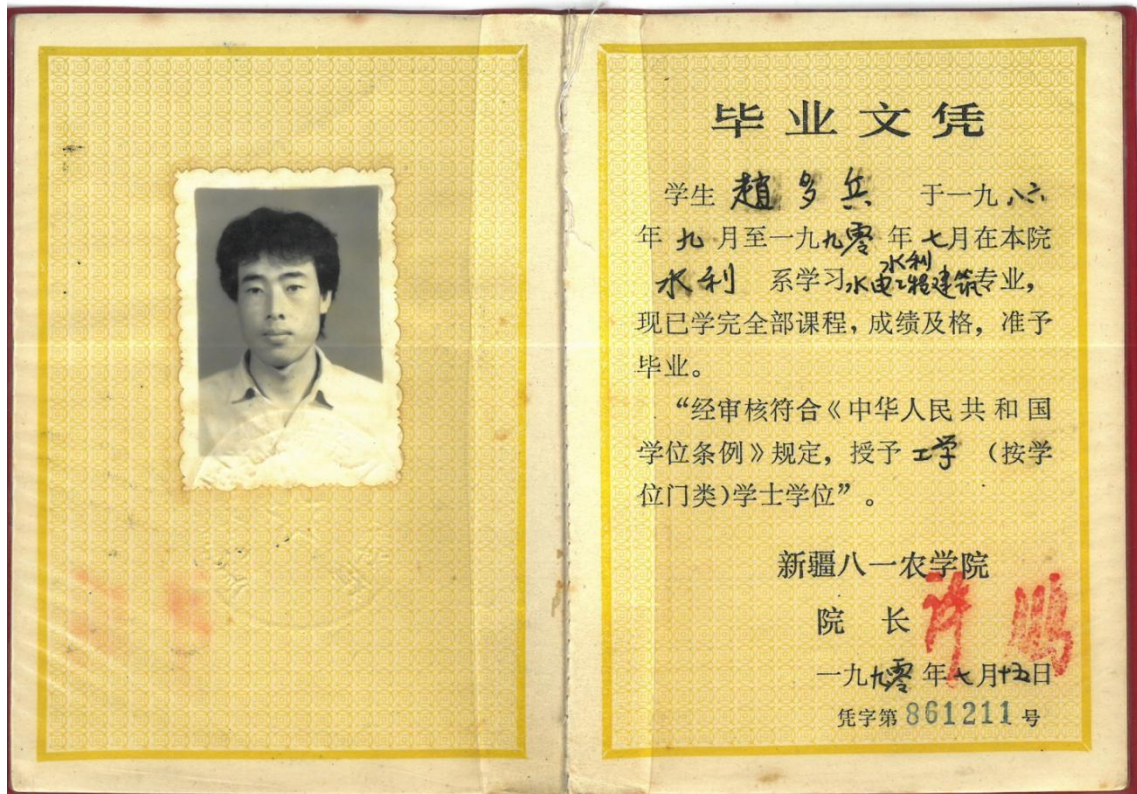 毕业文凭
学生 趙多兵 于一九八六
年九月至一九九零年七月在本院
水利系学习水利水电工程建筑专业，
现已学完全部课程，成绩及格，准予
毕业。
“经审核符合《中华人民共和国
学位条例》规定，授予工学（按学
位门类）学士学位”。
新疆八一农学院
院长 许鹏
一九九零年七月十五日
凭字第861211号